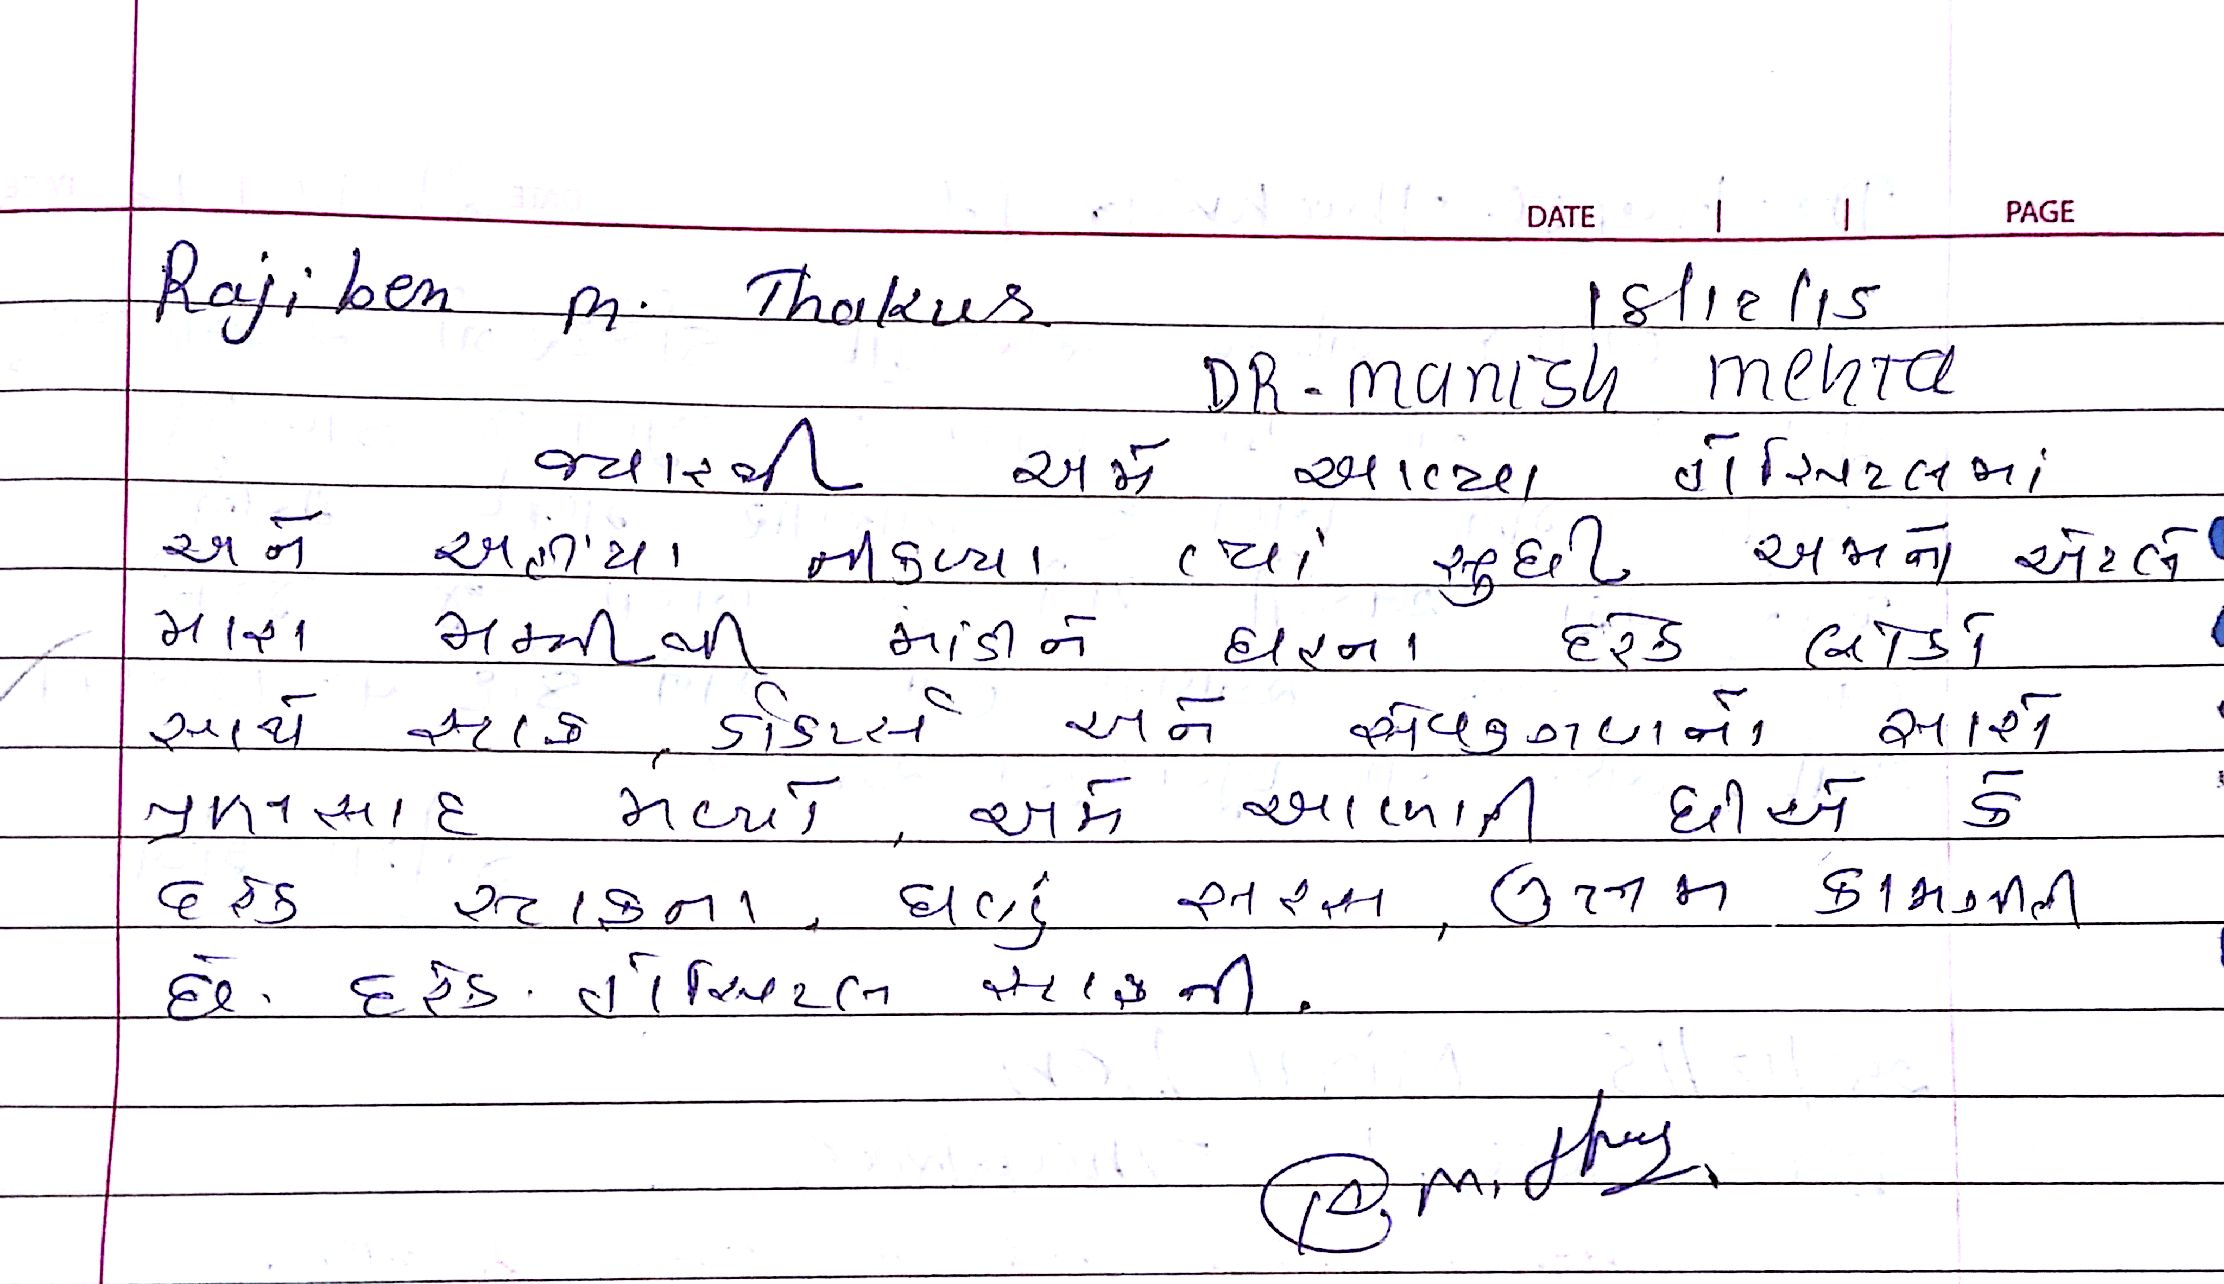 DATE | | PAGE
Rajiben m. Thakur 18/12/15
DR-manish mehta
જ્યારથી અમે આવ્યા હોસ્પિટલમાં
અને અહીંયા નીકળ્યા ત્યાં સુધી અમને એટલે
મારા મમ્મીથી માંડીને ઘરના દરેક લોકો
સાથે સ્ટાફ, ડોક્ટર્સ અને સારો
પ્રતિસાદ મળ્યો, અમે આભારી છીએ કે
દરેક સ્ટાફના, ઘણું સરસ, ઉત્તમ કામગીરી
છે. દરેક. હોસ્પિટલ સ્ટાફની.